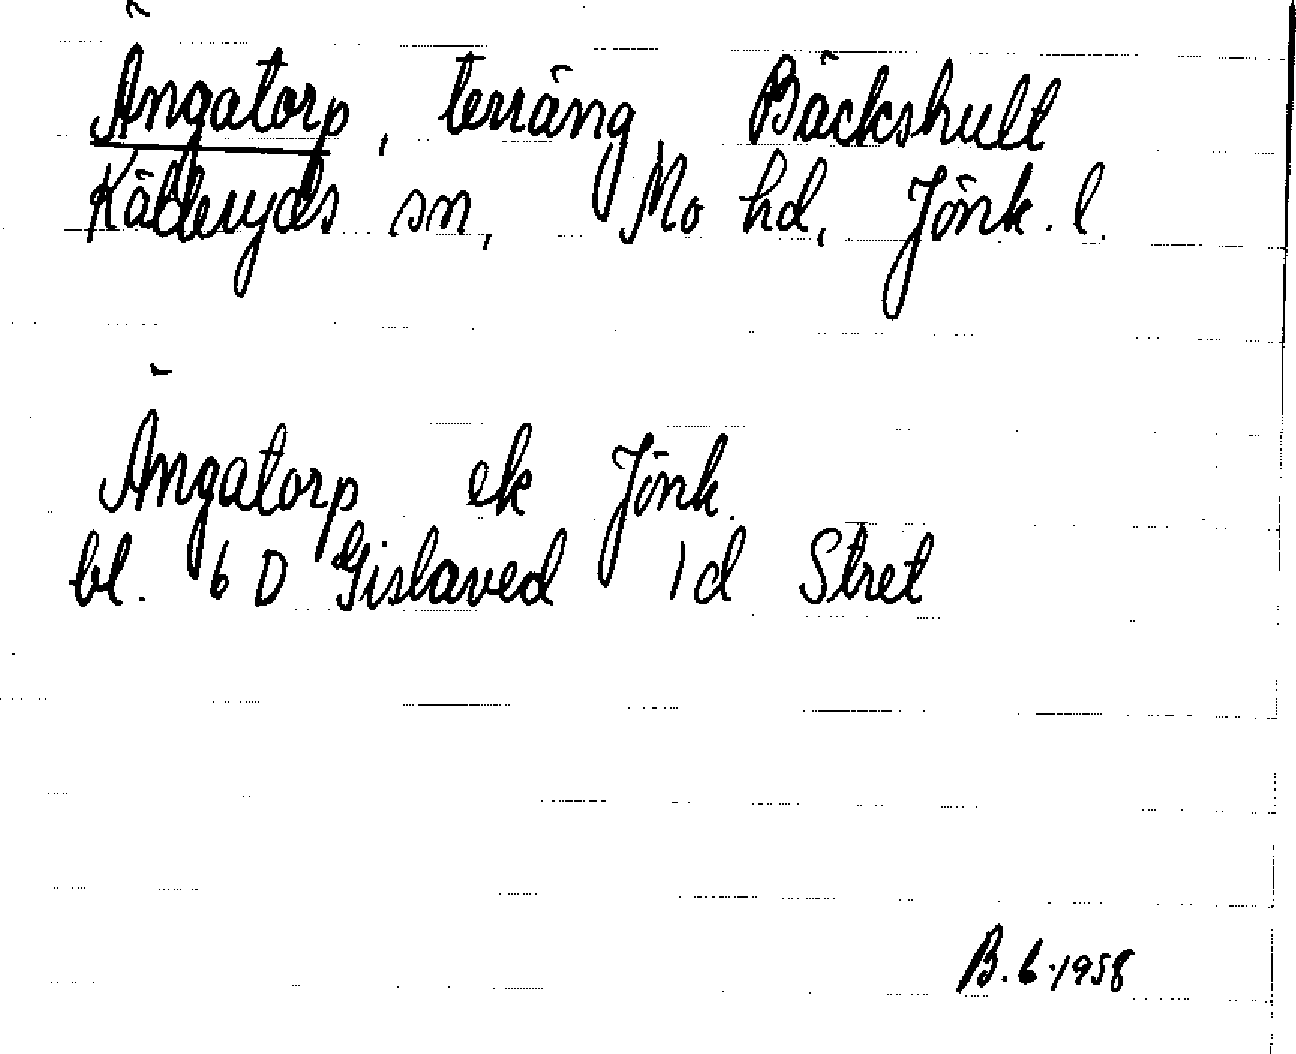 Ängatorp, terräng, Bäckshult
Kålleryds sn, Mo hd, Jönk. l.
Ängatorp ek Jönk.
bl. 6 D Gislaved 1d Stret
B. 6. 1958